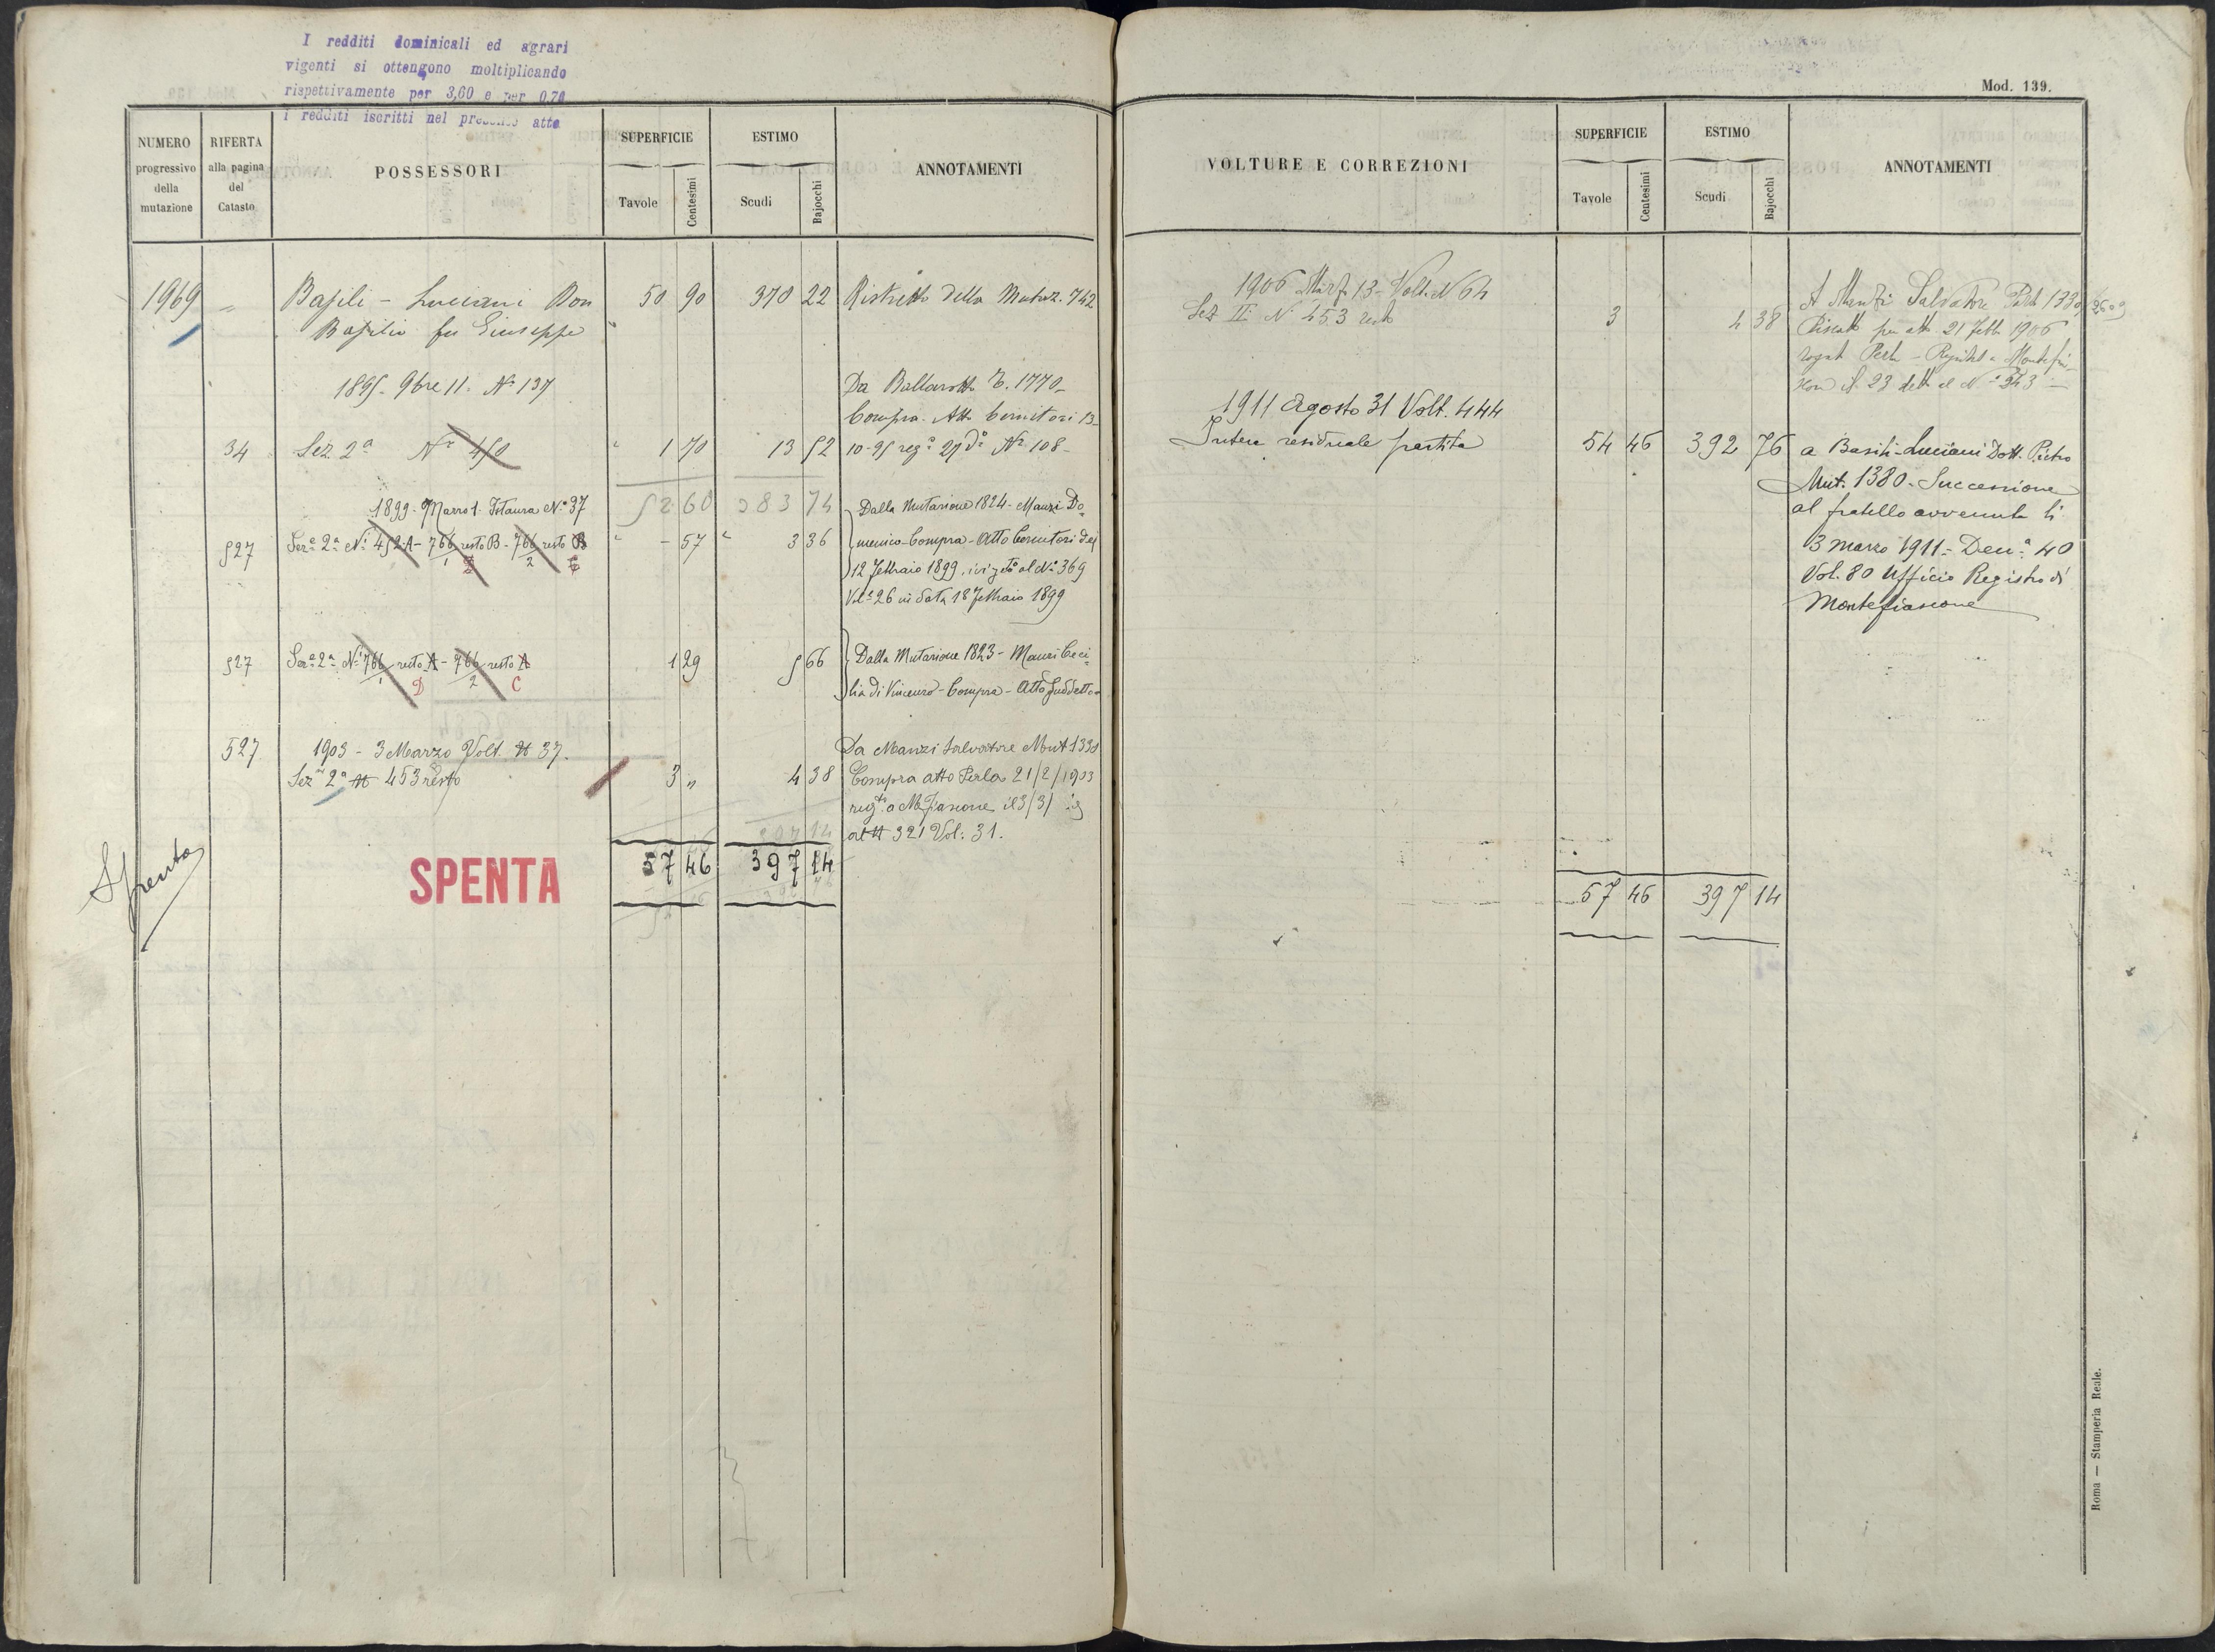 I redditi dominicali ed agrari
vigenti si ottengono moltiplicando
rispettivamente per 3,60 e per 0,70
i redditi iscritti nel presente atto
NUMERO
progressivo
della
mutazione
RIFERTA
alla pagina
del
Catasto
POSSESSORI
SUPERFICIE
Tavole
Centesimi
ESTIMO
Scudi
Bajocchi
ANNOTAMENTI
1969 " Basili - Luciani Don 50 90 370 22 Ristretto della Mutaz. 742
Basilio fu Giuseppe
1895. 9bre 11. Nº 137
Da Ballarotto T. 1770 -
Compra. Atto Cernitori 13-
34 Sez. 2ª Nº 450 " 1 70 13 52 10-95 regº 27 dº Nº 108 -
52 60 383 74
1899 - Marzo 1 - Voltura Nº 37
Dalla Mutazione 1824 - Manzi Do=
527 Sezº 2ª Nº 452A - 766/1 resto B - 766/2 resto B " - 57 " 3 36 menico - Compra - Atto Cernitori del
E
12 Febbraio 1899, ivi regto al Nº 369
Volº 26 in data 18 Febbraio 1899
527 Sezº 2ª Nº 766/1 resto A - 766/2 resto A 1 29 5 66 Dalla Mutazione 1823 - Manzi Ceci=
D C
lia di Vincenzo - Compra - Atto suddetto -
527 1903 - 3 Marzo Volt. N 37.
Da Manzi Salvatore Mut 1330
Sezº 2ª N 453 resto 3 " 4 38 Compra atto Perla 21/2/1903
regto a M.Fiascone il 3/3/ 03
al N 321 Vol. 31.
Spenta
SPENTA
57 46 397 14
Mod. 139.
VOLTURE E CORREZIONI
SUPERFICIE
Tavole
Centesimi
ESTIMO
Scudi
Bajocchi
ANNOTAMENTI
1906 Marzo 13 - Volt. N 64
Sez II N 453 resto 3 4 38
A Manzi Salvatore 1330
Riscatto per atto 21 Febb. 1906
rogato Perla - Registrato a Montefia-
scone il 23 detto al Nº 343 -
1911 Agosto 31 Volt. 444
Intera residuale partita 54 46 392 76 a Basili-Luciani Dott. Pietro
Mut. 1380 - Successione
al fratello avvenuta li
3 marzo 1911 - Denª 40
Vol. 80 Ufficio Registro di
Montefiascone
57 46 397 14
Roma — Stamperia Reale.